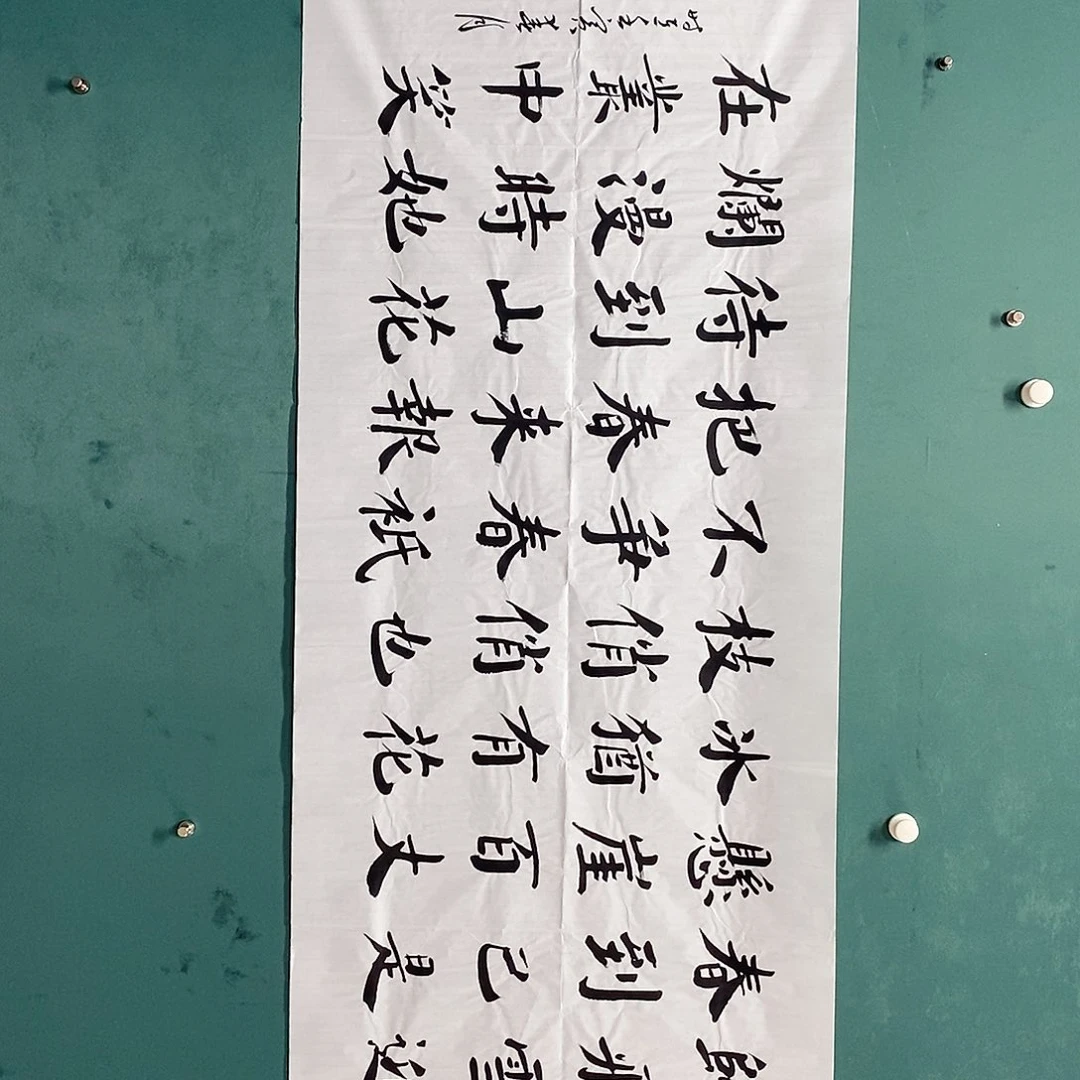 飛雪迎
春到已是
懸崖百丈
冰猶有花
枝俏俏也
不爭春祇
把春来報
待到山花
爛漫時她
在叢中笑